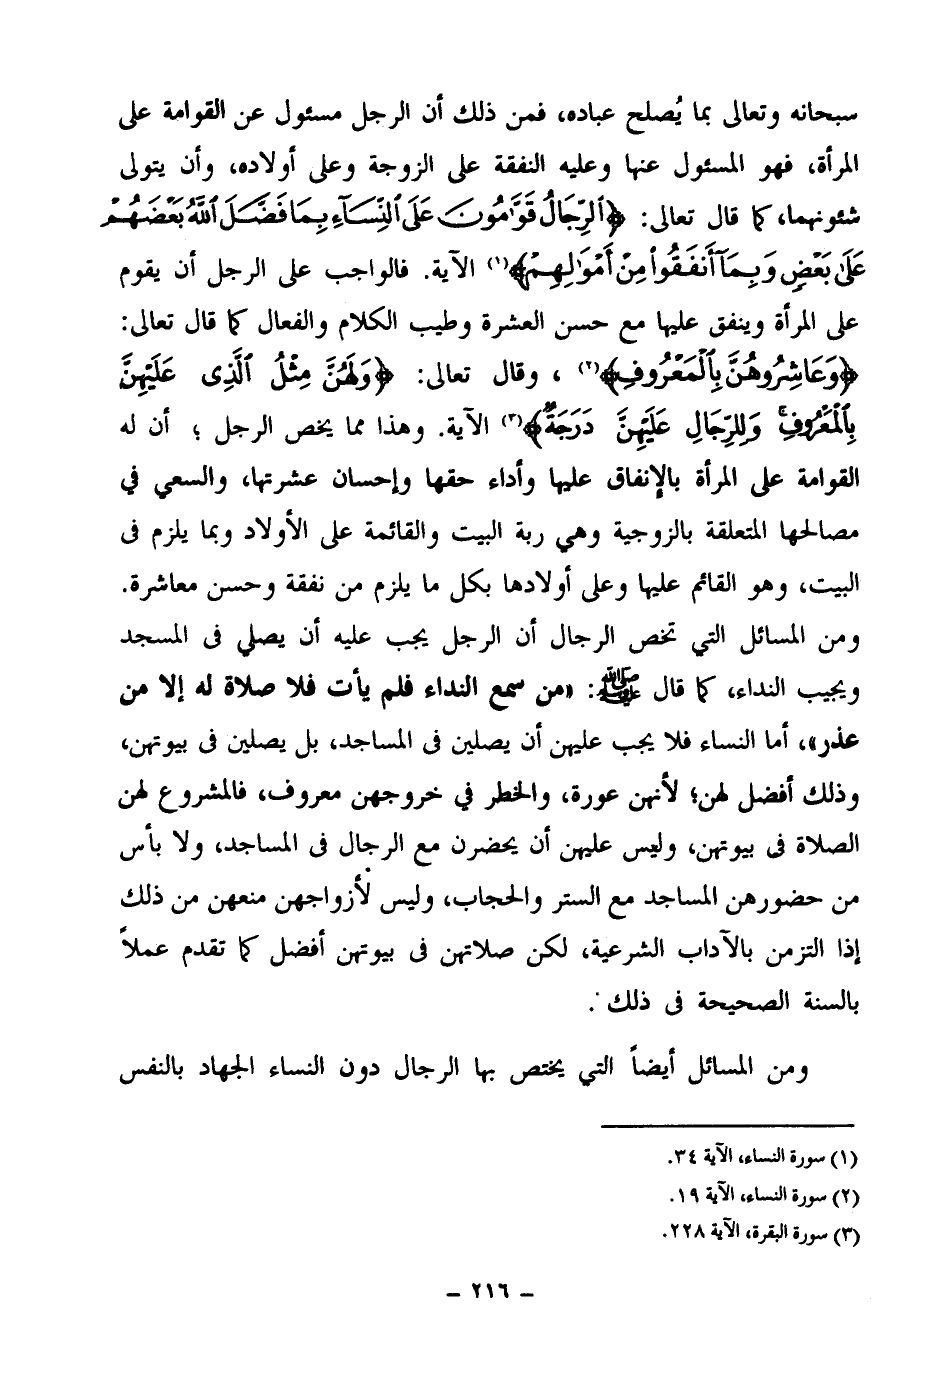 سبحانه وتعالى بما يُصلح عباده، فمن ذلك أن الرجل مسئول عن القوامة على
المرأة، فهو المسئول عنها وعليه النفقة على الزوجة وعلى أولاده، وأن يتولى
شئونهما، كما قال تعالى: ﴿ٱلرِّجَالُ قَوَّٰمُونَ عَلَى ٱلنِّسَآءِ بِمَا فَضَّلَ ٱللَّهُ بَعْضَهُمْ
عَلَىٰ بَعْضٍ وَبِمَآ أَنفَقُوا۟ مِنْ أَمْوَٰلِهِمْ﴾(١) الآية. فالواجب على الرجل أن يقوم
على المرأة وينفق عليها مع حسن العشرة وطيب الكلام والفعال كما قال تعالى:
﴿وَعَاشِرُوهُنَّ بِٱلْمَعْرُوفِ﴾(٢) ، وقال تعالى: ﴿وَلَهُنَّ مِثْلُ ٱلَّذِى عَلَيْهِنَّ
بِٱلْمَعْرُوفِ ۚ وَلِلرِّجَالِ عَلَيْهِنَّ دَرَجَةٌ﴾(٣) الآية. وهذا مما يخص الرجل ؛ أن له
القوامة على المرأة بالإنفاق عليها وأداء حقها وإحسان عشرتها، والسعي في
مصالحها المتعلقة بالزوجية وهي ربة البيت والقائمة على الأولاد وبما يلزم فى
البيت، وهو القائم عليها وعلى أولادها بكل ما يلزم من نفقة وحسن معاشرة.
ومن المسائل التي تخص الرجال أن الرجل يجب عليه أن يصلي فى المسجد
ويجيب النداء، كما قال ﷺ: «من سمع النداء فلم يأت فلا صلاة له إلا من
عذر»، أما النساء فلا يجب عليهن أن يصلين فى المساجد، بل يصلين فى بيوتهن،
وذلك أفضل لهن؛ لأنهن عورة، والخطر في خروجهن معروف، فالمشروع لهن
الصلاة فى بيوتهن، وليس عليهن أن يحضرن مع الرجال فى المساجد، ولا بأس
من حضورهن المساجد مع الستر والحجاب، وليس لأزواجهن منعهن من ذلك
إذا التزمن بالآداب الشرعية، لكن صلاتهن فى بيوتهن أفضل كما تقدم عملاً
بالسنة الصحيحة فى ذلك .
ومن المسائل أيضاً التي يختص بها الرجال دون النساء الجهاد بالنفس
(١) سورة النساء، الآية ٣٤.
(٢) سورة النساء، الآية ١٩.
(٣) سورة البقرة، الآية ٢٢٨.
- ٢١٦ -